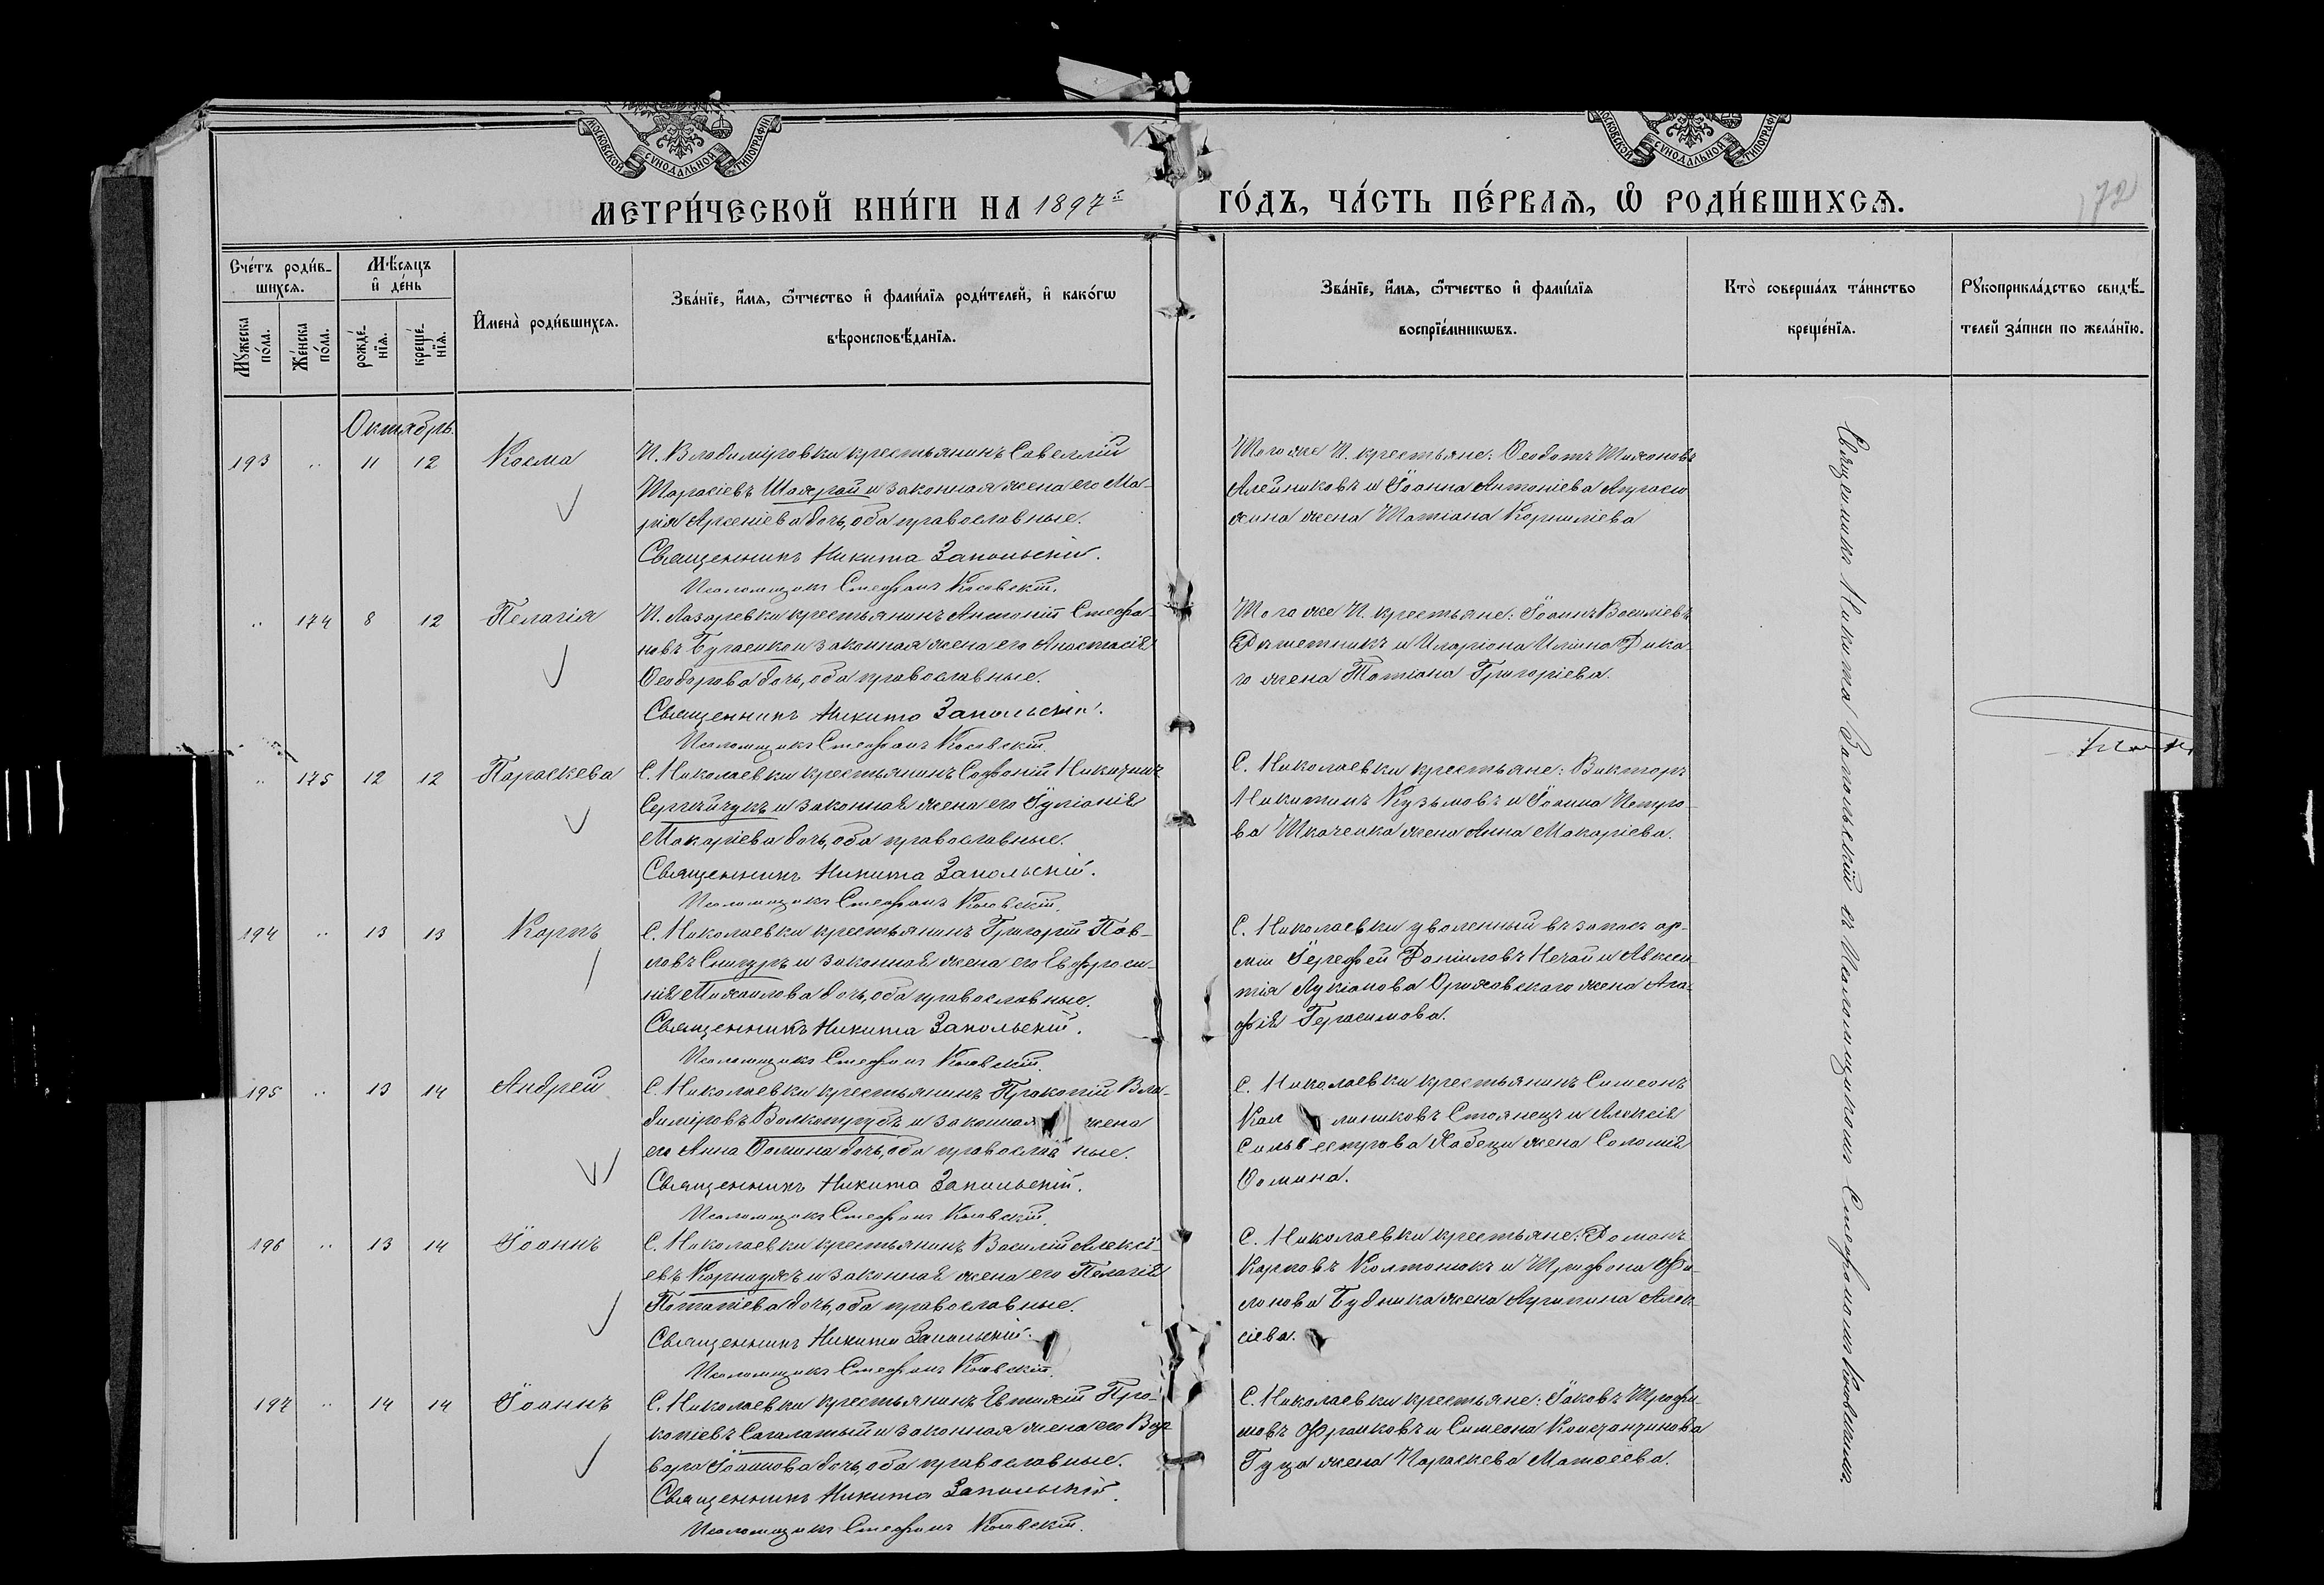 МОСКОВСКОЙ СУНОДАЛЬНОЙ ТИПОГРАФІИ
МОСКОВСКОЙ СУНОДАЛЬНОЙ ТИПОГРАФІИ
МЕТРИ́ЧЕСКОЙ КНИ́ГИ НА 1897й ГО́ДЪ, ЧА́СТЬ ПЕ́РВАѦ, Ѡ҆ РОДИ́ВШИХСѦ.
172
Сче́тъ роди́в-
шихсѧ.
Мꙋ́жеска по́ла.
Же́нска по́ла.
Мѣ́сѧцъ
и҆ де́нь
рожде́-
нїѧ.
креще́-
нїѧ.
И҆мена̀ роди́вшихсѧ.
Зва́нїе, и҆́мѧ, ѻ҆́тчество и҆ фами́лїѧ роди́телей, и҆ како́гѡ
вѣроисповѣ́данїѧ.
Зва́нїе, и҆́мѧ, ѻ҆́тчество и҆ фами́лїѧ
воспрїе́мникѡвъ.
Кто̀ соверша́лъ та́инство
креще́нїѧ.
Рꙋкоприкла́дство свидѣ́-
телей за́писи по жела́нїю.
Октябрь.
193 " 11 12 Косма
П. Владиміровки крестьянинъ Савеллій
Тарасіевъ Шахрай и законная жена его Ма-
рія Арсеніева дочь, оба православные.
Священникъ Никита Запольскій.
Псаломщикъ Стефанъ Косовскій.
Того же П. крестьяне: Ѳеодотъ Тихоновъ
Алейниковъ и Іоанна Антоніева
жена Татіана Корниліева
" 174 8 12 Пелагія
П. Лазаревки крестьянинъ Антоній Стефа-
новъ Бугаенко и законная жена его Анастасія
Ѳеодорова дочь, оба православные.
Священникъ Никита Запольскій.
Псаломщикъ Стефанъ Косовскій.
Того же П. крестьяне: Іоаннъ Василіевъ
Решетникъ и Иларіона Иліина Дика-
го жена Татіана Григоріева.
" 175 12 12 Параскева
С. Николаевки крестьянинъ Софоній Никитинъ
Сергейчукъ и законная жена его Іуліанія
Макаріева дочь, оба православные.
Священникъ Никита Запольскій.
Псаломщикъ Стефанъ Косовскій.
С. Николаевки крестьяне: Викторъ
Никитинъ Кузьмовъ и Іоанна Петро-
ва Ткаченка жена Анна Макаріева.
194 " 13 13 Карпъ
С. Николаевки крестьянинъ Григорій Пав-
ловъ Снигуръ и законная жена его Евфроси-
нія Михаилова дочь, оба православные.
Священникъ Никита Запольскій.
Псаломщикъ Стефанъ Косовскій.
С. Николаевки уволенный въ запасъ ар-
міи Іерофей Даніиловъ Нечай и Авксен-
тія Лукіанова Ориховскаго жена Ага-
фія Герасимова.
195 " 13 14 Андрей
С. Николаевки крестьянинъ Прокопій Вла-
диміровъ Волкотрубъ и законная жена
его Анна Ѳомина дочь, оба православные.
Священникъ Никита Запольскій.
Псаломщикъ Стефанъ Косовскій.
С. Николаевки крестьянинъ Симеонъ
Кал линиковъ Стоянецъ и Алексія
Сильвестрова жена Соломія
Ѳомина.
196 " 13 14 Іоаннъ
С. Николаевки крестьянинъ Василій Алексі-
евъ Карнаухъ и законная жена его Пелагія
Потапіева дочь, оба православные.
Священникъ Никита Запольскій.
Псаломщикъ Стефанъ Косовскій.
С. Николаевки крестьяне: Романъ
Карповъ Колтонюкъ и Трифона Фи-
лонова Будника жена Агрипина Алек-
сіева.
197 " 14 14 Іоаннъ
С. Николаевки крестьянинъ Евтихій Про-
копіевъ Сагалатый и законная жена его Вар-
вара Іоаннова дочь, оба православные.
Священникъ Никита Запольскій.
Псаломщикъ Стефанъ Косовскій.
С. Николаевки крестьяне: Іаковъ Трофи-
мовъ Франковъ и Симеона Констанинова
Гуца жена Параскева Матѳеева.
Священникъ Никита Запольскій съ Псаломщикомъ Стефаномъ Косовскимъ.